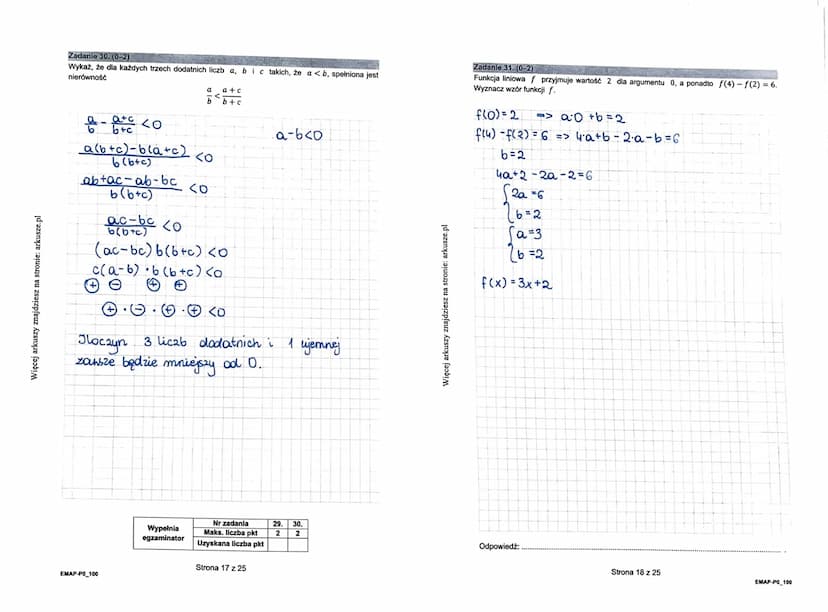 Zadanie 30. (0–2)
Wykaż, że dla każdych trzech dodatnich liczb a, b i c takich, że a < b, spełniona jest
nierówność
a/b < a+c/b+c
a/b - a+c/b+c <0
a-b<0
a(b+c)-b(a+c)/b(b+c) <0
ab+ac-ab-bc/b(b+c) <0
ac-bc/b(b+c) <0
(ac-bc) b(b+c) <0
c(a-b) · b (b+c) <0
⊕ ⊖ ⊕ ⊕
⊕ · ⊖ · ⊕ · ⊕ <0
Iloczyn 3 liczb dodatnich i 1 ujemnej
zawsze będzie mniejszy od 0.
Więcej arkuszy znajdziesz na stronie: arkusze.pl
Wypełnia
egzaminator
Nr zadania 29. 30.
Maks. liczba pkt 2 2
Uzyskana liczba pkt
Strona 17 z 25
EMAP-P0_100
Zadanie 31. (0–2)
Funkcja liniowa f przyjmuje wartość 2 dla argumentu 0, a ponadto f(4) − f(2) = 6.
Wyznacz wzór funkcji f.
f(0)=2 => a·0 +b=2
f(4) -f(2)=6 => 4·a+b - 2·a-b=6
b=2
4a+2 -2a-2=6
{2a=6
b=2
{a=3
b=2
f(x)=3x+2
Więcej arkuszy znajdziesz na stronie: arkusze.pl
Odpowiedź:
Strona 18 z 25
EMAP-P0_100